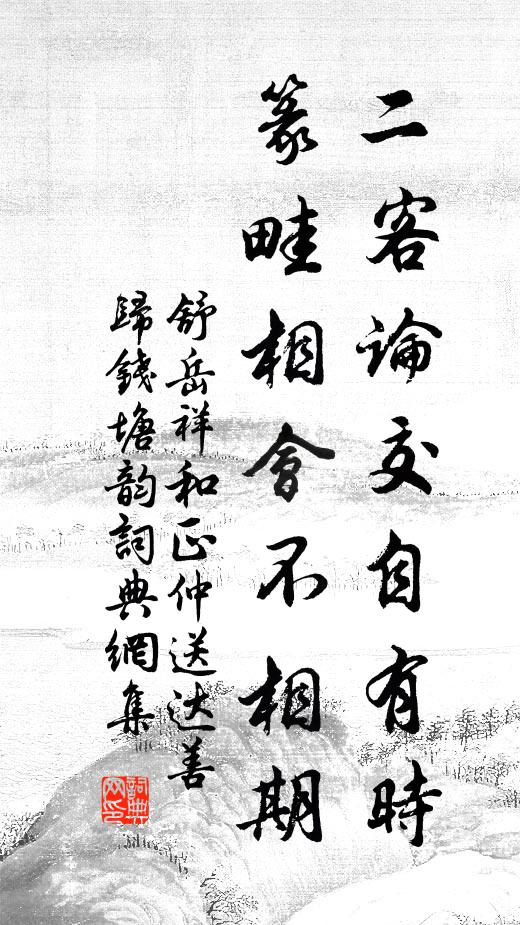 二客論交自有時
篆畦相會不相期
舒岳祥和正仲送达善
歸錢塘韵詞典網集
詞典网印